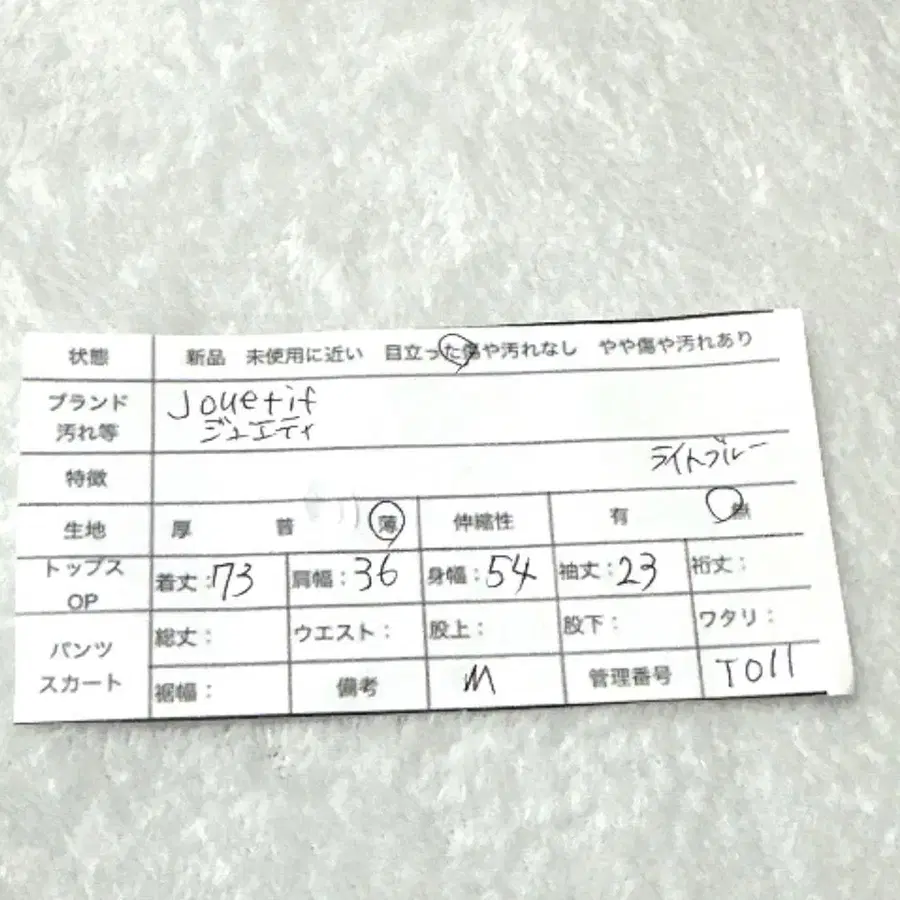 状態 新品 未使用に近い 目立った傷や汚れなし やや傷や汚れあり
ブランド 汚れ等 Jouetif
ジュエティ
特徴 ライトブルー
生地 厚 普 薄 伸縮性 有 無
トップス OP 着丈:73 肩幅:36 身幅:54 袖丈:23 裄丈:
パンツ スカート 総丈: ウエスト: 股上: 股下: ワタリ:
裾幅: 備考 M 管理番号 T011